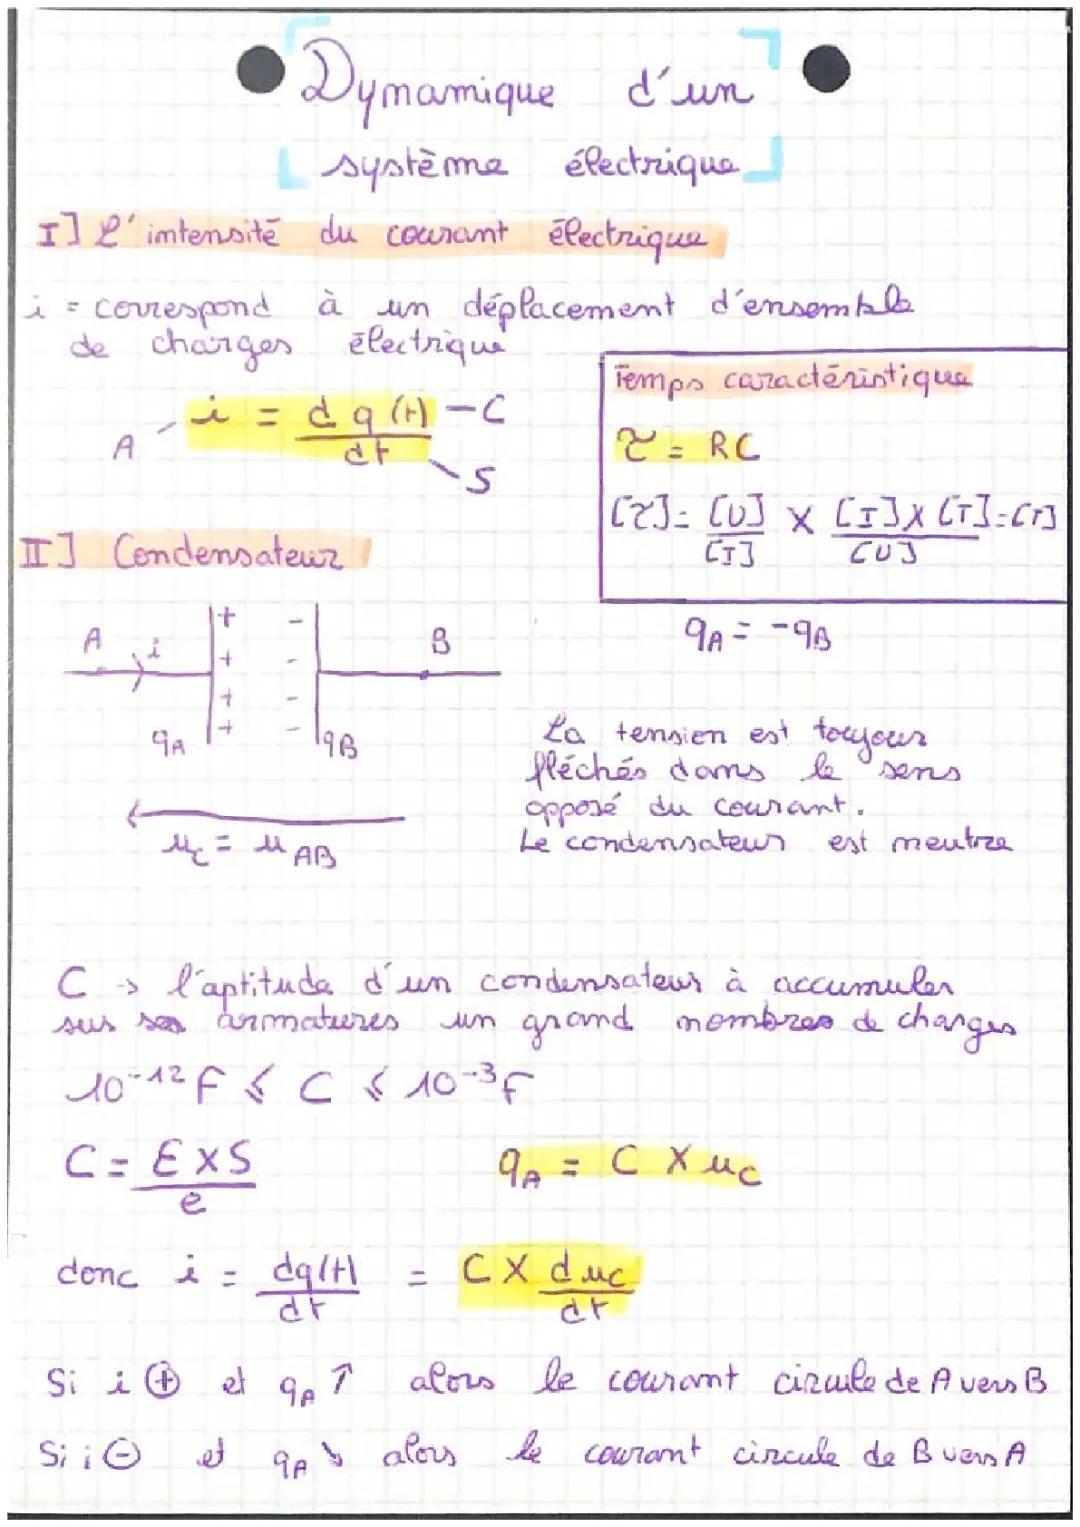 Dynamique d'un
système électrique
I] L'intensité du courant électrique
i = correspond à un déplacement d'ensemble
de charges électrique
A - i = dq(t) - C
dt - S
Temps caractéristique
τ = RC
[τ] = [U] × [I] × [T] = [T]
[I] [U]
II] Condensateur
A i + - B
+ -
+ -
+ -
qA qB
uc = uAB
qA = -qB
La tension est toujours
fléchés dans le sens
opposé du courant.
Le condensateur est neutre
C → l'aptitude d'un condensateur à accumuler
sur ses armatures un grand nombres de charges
10⁻¹² F ≤ C ≤ 10⁻³ F
C = ε × S
e
qA = C × uc
donc i = dq(t) = C × duc
dt dt
Si i ⊕ et qA ↑ alors le courant circule de A vers B
Si i ⊖ et qA ↘ alors le courant circule de B vers A